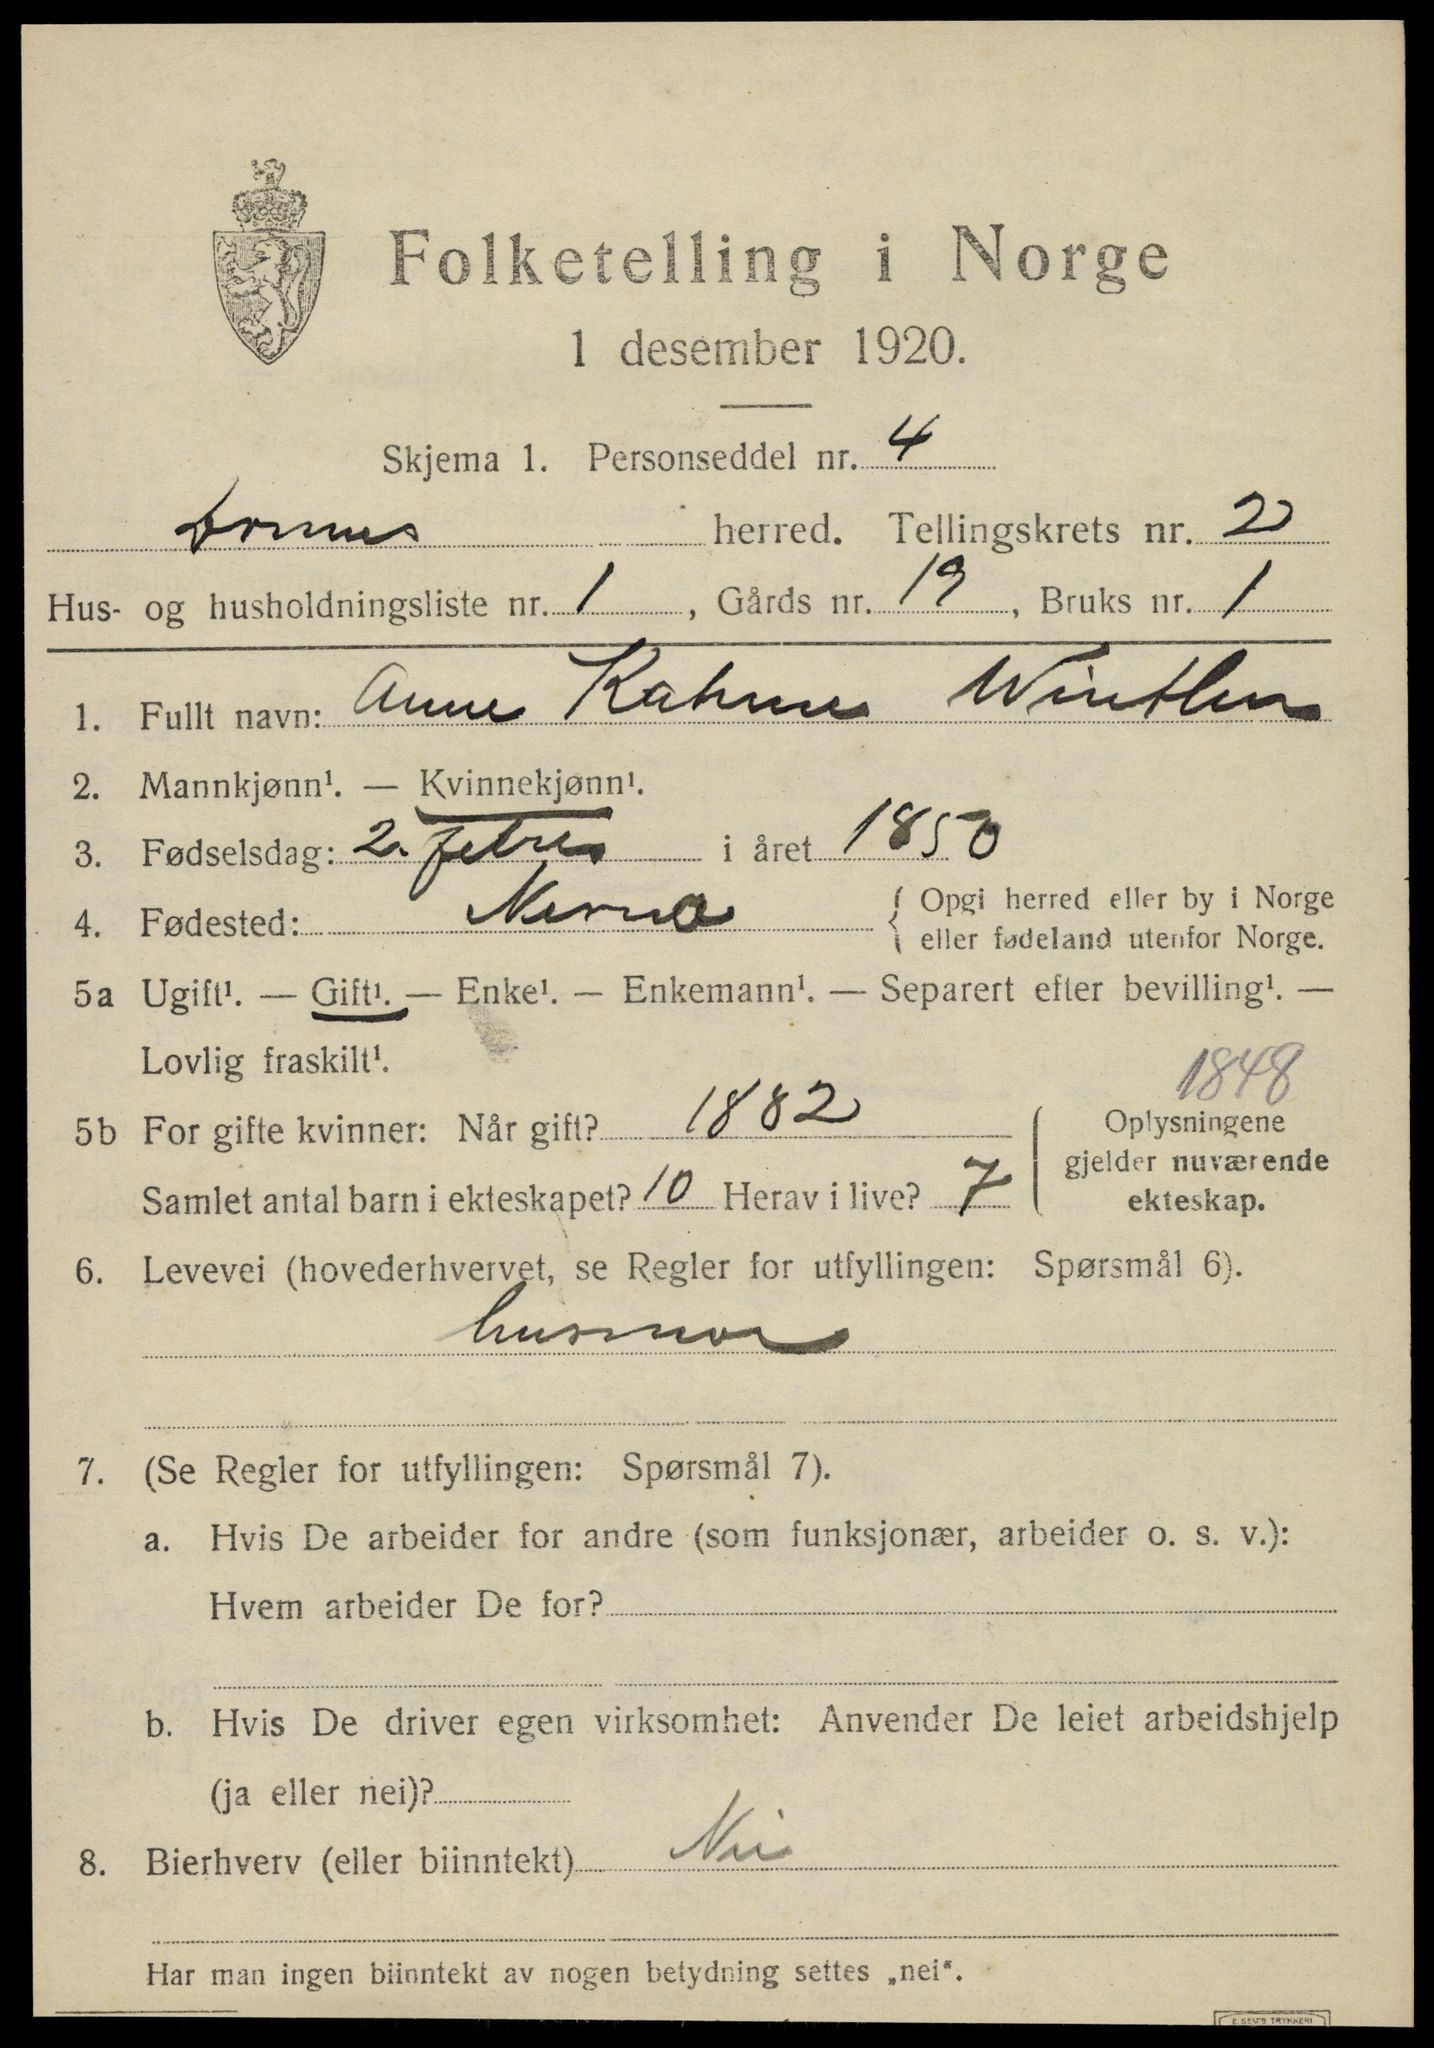 Folketelling i Norge
1 desember 1920.
Skjema 1. Personseddel nr. 4
herred. Tellingskrets nr. 2
Hus- og husholdningsliste nr. 1, Gårds nr. 19, Bruks nr. 1
1. Fullt navn: Anne Katrine Winther
2. Mannkjønn¹. — Kvinnekjønn¹.
3. Fødselsdag: 2. febru i året 1850
4. Fødested: { Opgi herred eller by i Norge
eller fødeland utenfor Norge.
5a Ugift¹. — Gift¹. — Enke¹. — Enkemann¹. — Separert efter bevilling¹. —
Lovlig fraskilt¹.
1848
5b For gifte kvinner: Når gift? 1882
Samlet antal barn i ekteskapet? 10 Herav i live? 7
Oplysningene
gjelder nuværende
ekteskap.
6. Levevei (hovederhvervet, se Regler for utfyllingen: Spørsmål 6).
husmor
7. (Se Regler for utfyllingen: Spørsmål 7).
a. Hvis De arbeider for andre (som funksjonær, arbeider o. s. v.):
Hvem arbeider De for?
b. Hvis De driver egen virksomhet: Anvender De leiet arbeidshjelp
(ja eller nei)?
8. Bierhverv (eller biinntekt) Nei
Har man ingen biinntekt av nogen betydning settes „nei“.
E. SEM'S TRYKKERI